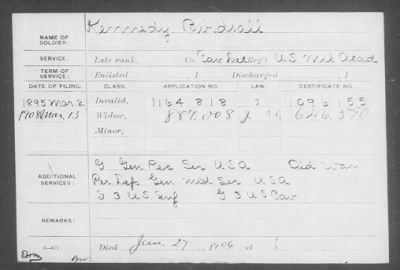 NAME OF SOLDIER: Kennedy Birdsall
SERVICE: Late rank, Co. Cav Det Reg't US Mil Acad
TERM OF SERVICE: Enlisted , 1 Discharged , 1
DATE OF FILING. CLASS. APPLICATION NO. LAW. CERTIFICATE NO.
1895 Mar 2 Invalid, 1164818 696,155
1908 Mar, 13 Widow, 887.008 646,570
Minor,
ADDITIONAL SERVICES: G Gen Rec Ser USA Cid War
Gen Ser USA
US Inf G 3 US Cav
REMARKS:
Died Jan. 27, 1906, at ?